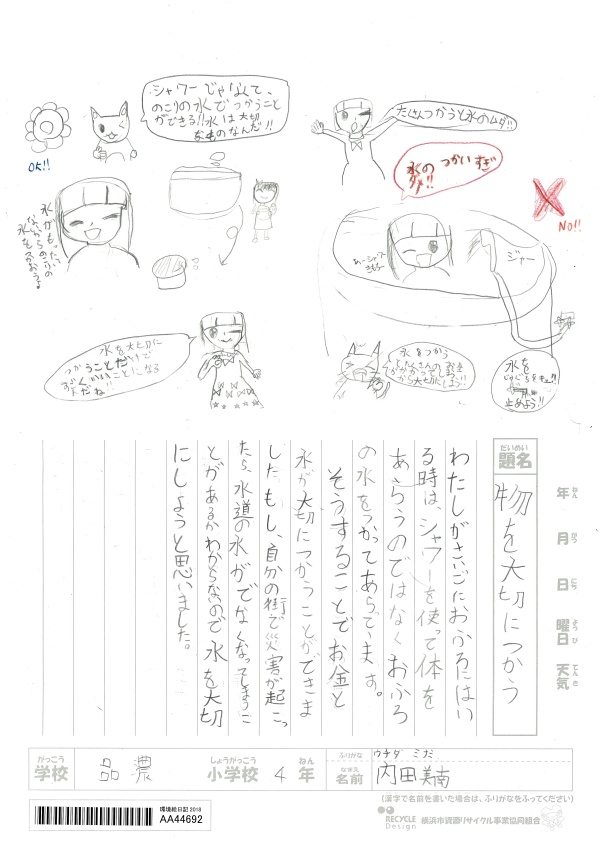 シャワーじゃなくて、
のこりの水でつかうこと
ができる!!水は大切
なものなんだ!!
たくさんつかうと水のムダ!!
水の つかいすぎ
ダメ!!
OK!!
NO!!
水がもったい
ないからのこりの
水をつかおうよ
あーシャワー
きもちー
ジャー
水を大切に
つかうことだけで
すごくいいことになる
んだね!!
水をつかう
とたくさんのお金
がかかるの
から大切にしよう!!
水を
止めよう!!
だいめい
題名
物を大切につかう
年 ねん
月 がつ
日 にち
曜日 ようび
天気 てんき
わたしがさいごにおふろにはい
る時は、シャワーを使って体を
あらうのではなくおふろ
の水をつかってあらっています。
そうすることでお金と
水が大切につかうことができま
した。もし、自分の街で災害が起こっ
たら、水道の水がでなくなってしまうこ
とがあるかわからないので水を大切
にしようと思いました。
がっこう しょうがっこう ねん
学校 品濃 小学校 4 年
ふりがな ウチダ ミナ
なまえ
名前 内田美南
(漢字で名前を書いた場合は、ふりがなをふってください)
環境絵日記 2018
AA44692
RECYCLE Design
横浜市資源リサイクル事業協同組合